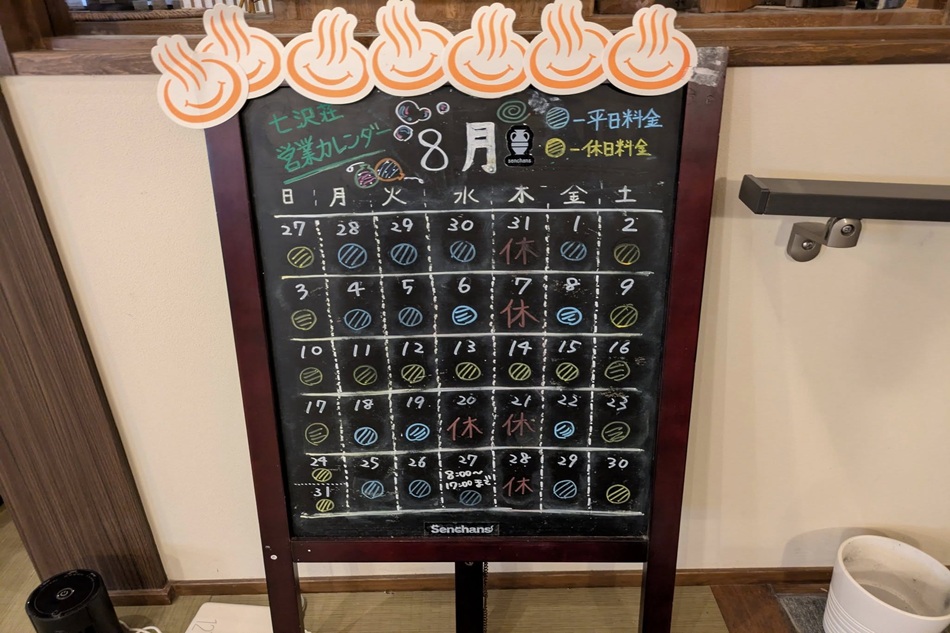 七沢荘
営業カレンダー
8月
senchans
一平日料金
一休日料金
日 月 火 水 木 金 土
27 28 29 30 31 1 2
休
3 4 5 6 7 8 9
休
10 11 12 13 14 15 16
17 18 19 20 21 22 23
休 休
24 25 26 27 28 29 30
8:00〜
17:00まで
休
31
Senchans
12